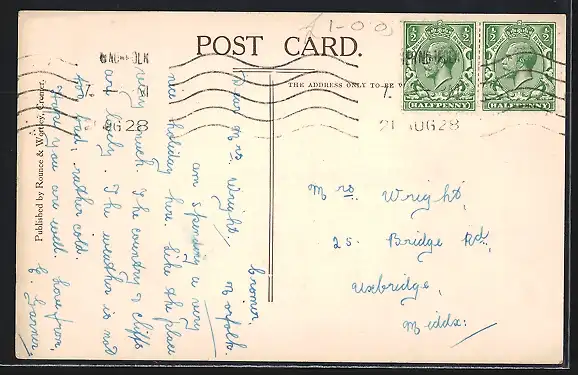 £1-00
POST CARD.
THE ADDRESS ONLY TO BE
HALFPENNY
HALFPENNY
21 AUG 28
21 AUG 28
Cromer
Norfolk.
Dear Mrs. Wright,
am spending a very
nice holiday here. Like the place
very much. The country & cliffs
are lovely. The weather is not
too bad, rather cold.
Hope you are well. Love from,
E. Garner
Mrs. Wright,
25. Bridge Rd.,
Uxbridge,
Middx:
Published by Rounce & Wortley, Cromer.